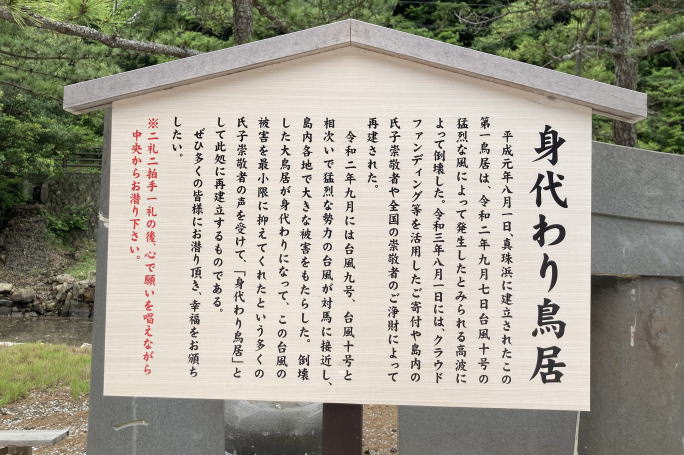 身代わり鳥居
平成元年八月一日、真珠浜に建立されたこの
第一鳥居は、令和二年九月七日台風十号の
猛烈な風によって発生したとみられる高波に
よって倒壊した。令和三年八月一日には、クラウド
ファンディング等を活用したご寄付や島内の
氏子崇敬者や全国の崇敬者のご浄財によって
再建された。
令和二年九月には台風九号、台風十号と
相次いで猛烈な勢力の台風が対馬に接近し、
島内各地で大きな被害をもたらした。倒壊
した大鳥居が身代わりになって、この台風の
被害を最小限に抑えてくれたという多くの
氏子崇敬者の声を受けて、「身代わり鳥居」と
して此処に再建立するものである。
ぜひ多くの皆様にお潜り頂き、幸福をお頒ち
したい。
※二礼二拍手一礼の後、心で願いを唱えながら
中央からお潜り下さい。